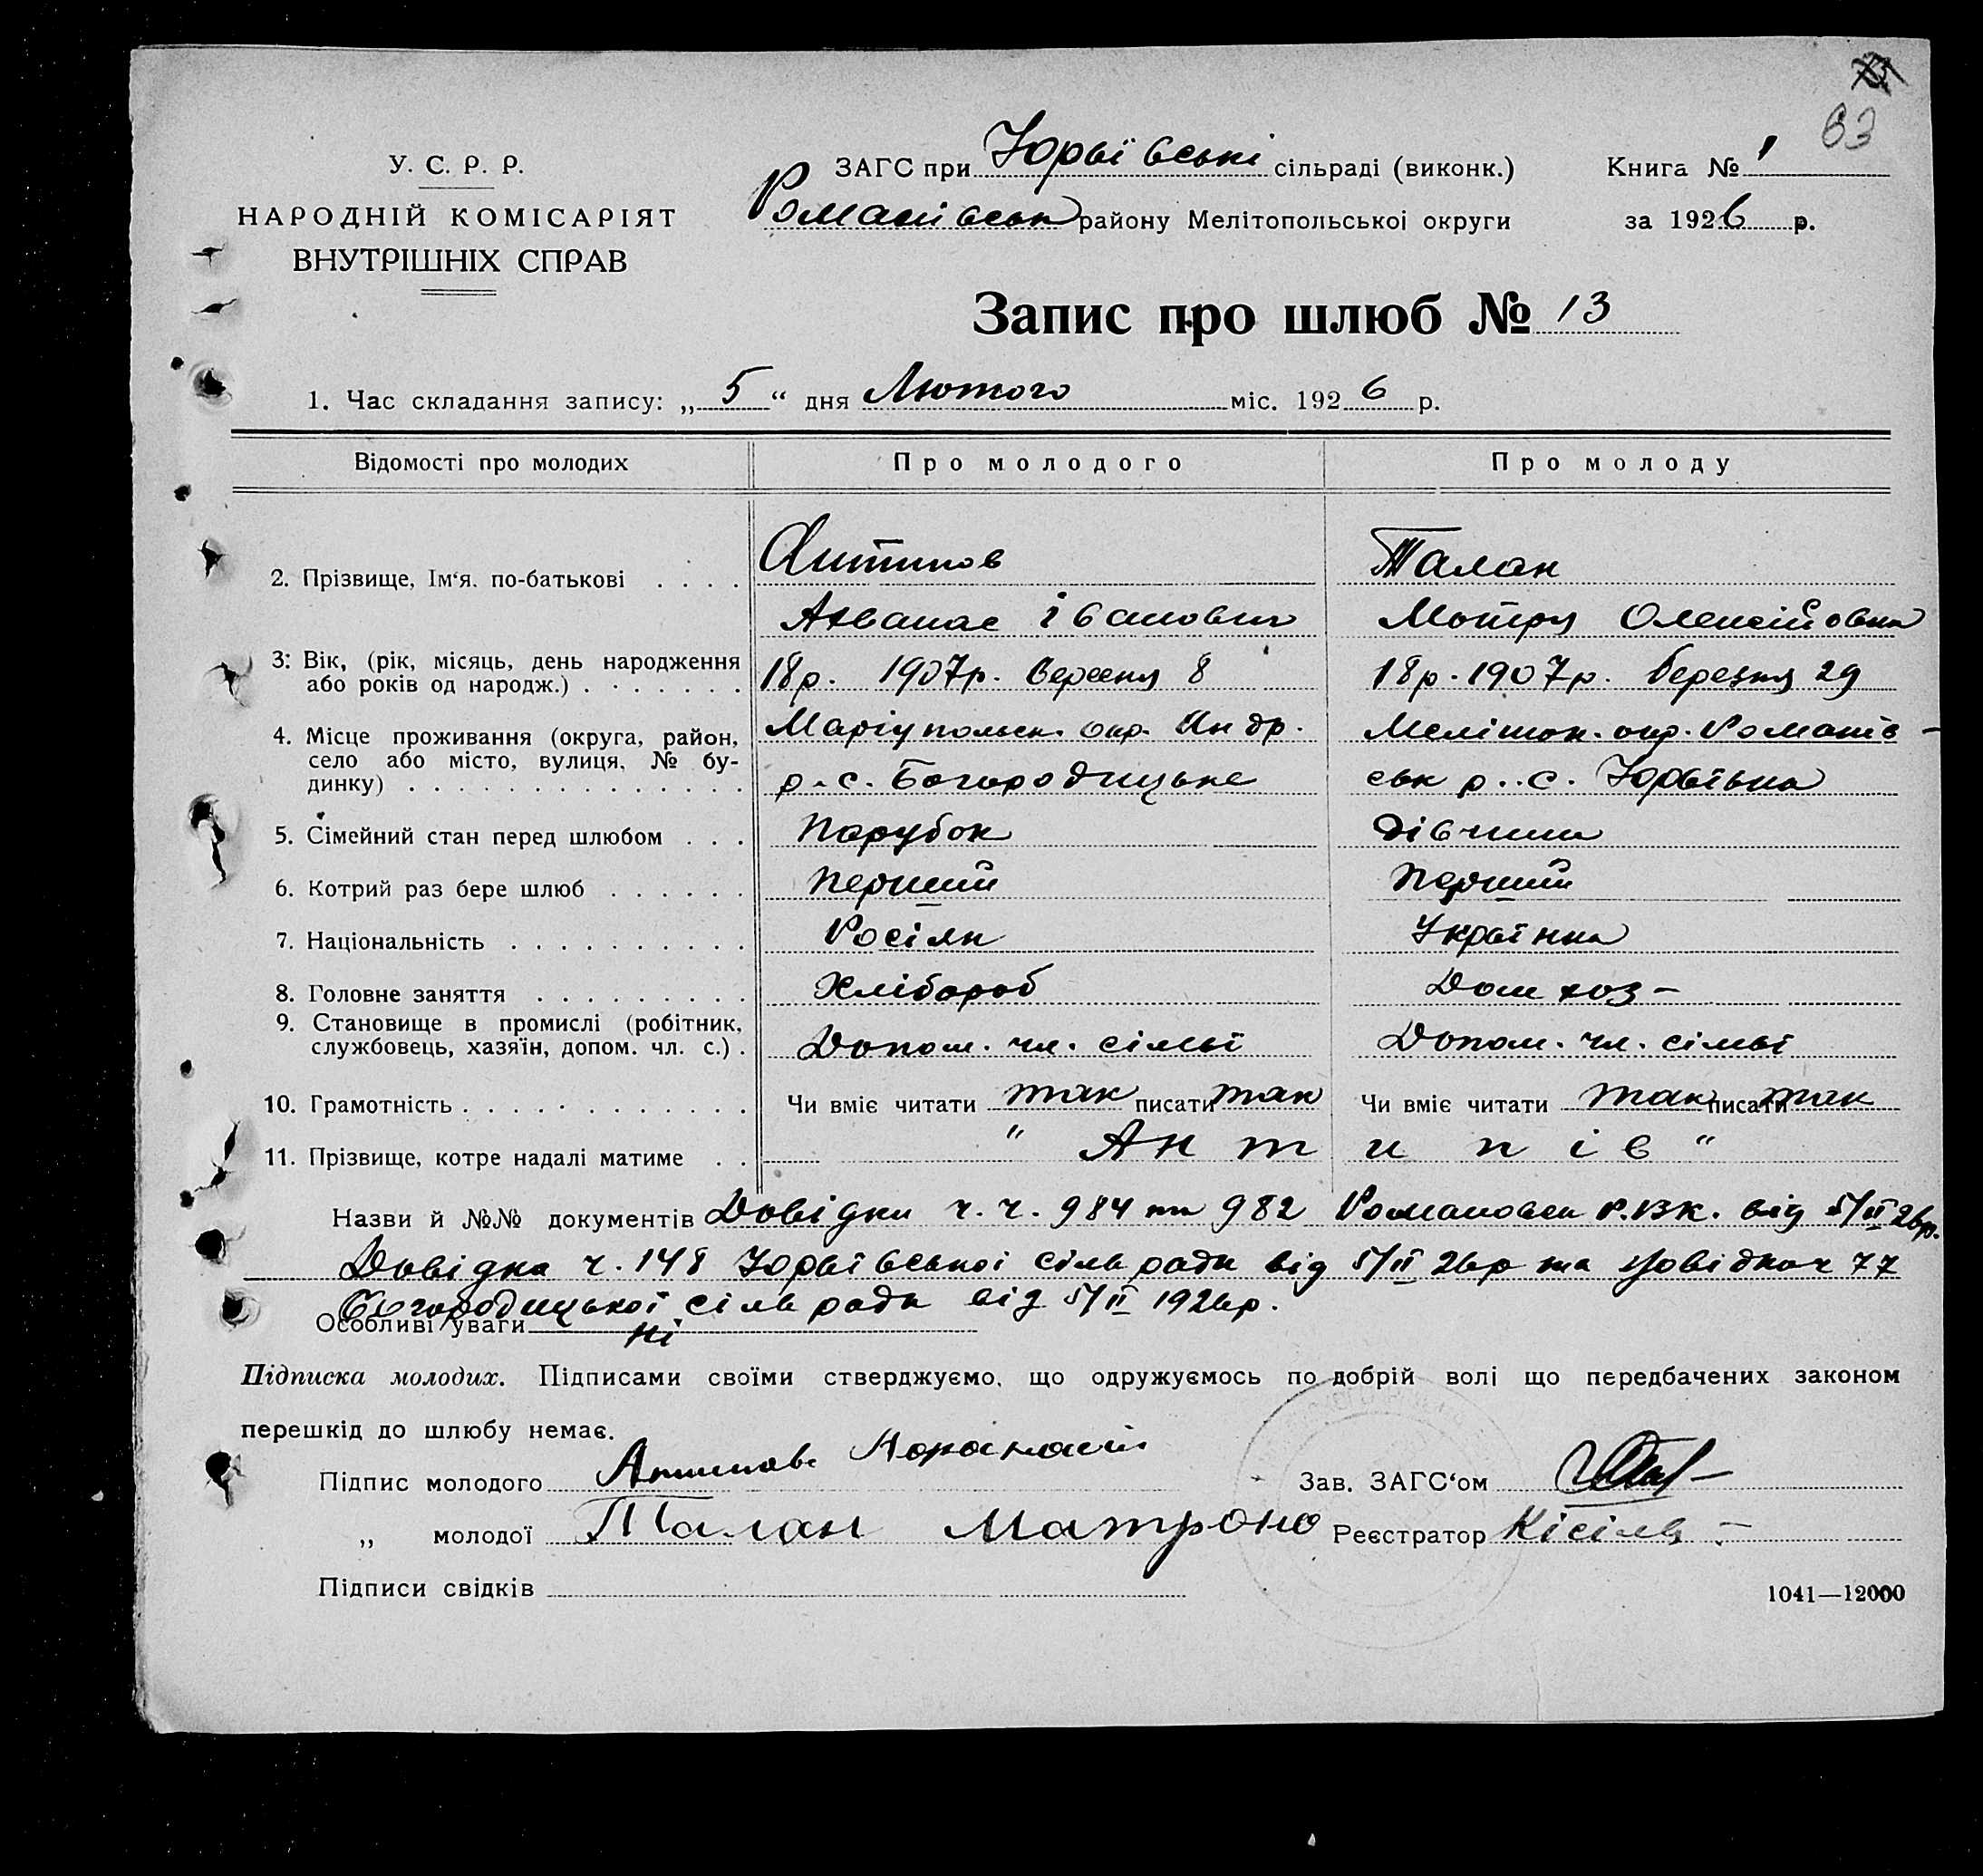 83
У. С. Р. Р.
НАРОДНІЙ КОМІСАРІЯТ
ВНУТРІШНІХ СПРАВ
ЗАГС при Юрьївські сільраді (виконк.)
Романівськ району Мелітопольської округи
Книга № 1
за 1926 р.
Запис про шлюб № 13
1. Час складання запису: „ 5 “ дня Лютого міс. 1926 р.
Відомості про молодих Про молодого Про молоду
2. Прізвище, Ім‘я. по-батькові . . . . Антипов Талан
Ахванас Іванович Мотря Олексійовна
3: Вік, (рік, місяць, день народження 18р. 1907р. вересня 8 18р. 1907р. березня 29
або років од народж.) . . . . . . .
4. Місце проживання (округа, район, Маріупольск. окр. Андр. Меліток. окр. Романів-
село або місто, вулиця, № бу- р. с. Богородицьке ськ р. с. Юрьївка
динку) . . . . . . . . . . . . . .
5. Сімейний стан перед шлюбом . . . Парубок дівчина
6. Котрий раз бере шлюб . . . . . . перший перший
7. Національність . . . . . . . . . . Росіян Українка
8. Головне заняття . . . . . . . . . Хлібороб Дом хоз-
9. Становище в промислі (робітник, Допом. чл. сімьі Допом. чл. сімьі
службовець, хазяїн, допом. чл. с.) .
10. Грамотність . . . . . . . . . . . . Чи вміє читати так писати так Чи вміє читати так писати так
11. Прізвище, котре надалі матиме . . " Антипів "
Назви й №№ документів Довідки ч. ч. 984 та 982 Романовск Р.В.К. від 5/II 26р.
Довідка ч. 148 Юрьївської сільради від 5/II 26р та довідка ч 77
Богородицької сільради від 5/II 1926р.
Особливі уваги ні
Підписка молодих. Підписами своїми стверджуємо, що одружуємось по добрій волі що передбачених законом
перешкід до шлюбу немає.
Підпис молодого Антипов Афанасий
Зав. ЗАГС‘ом
„ молодої Талан Матрона Реєстратор Кісіль
Підписи свідків
1041—12000